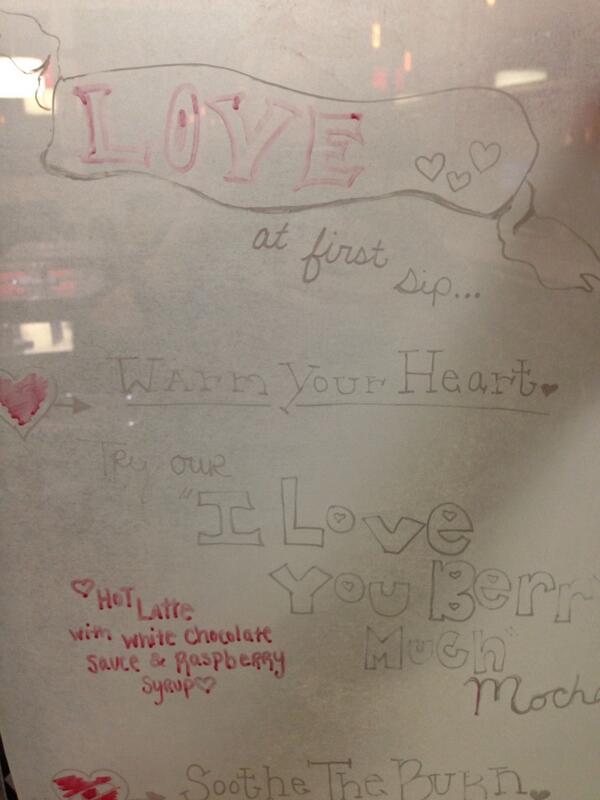 LOVE
at first
sip...
Warm Your Heart.
Try our
"I Love
You Berr
Much"
Mocha
Hot Latte
with white chocolate
sauce & Raspberry
Syrup
Soothe The Burn.